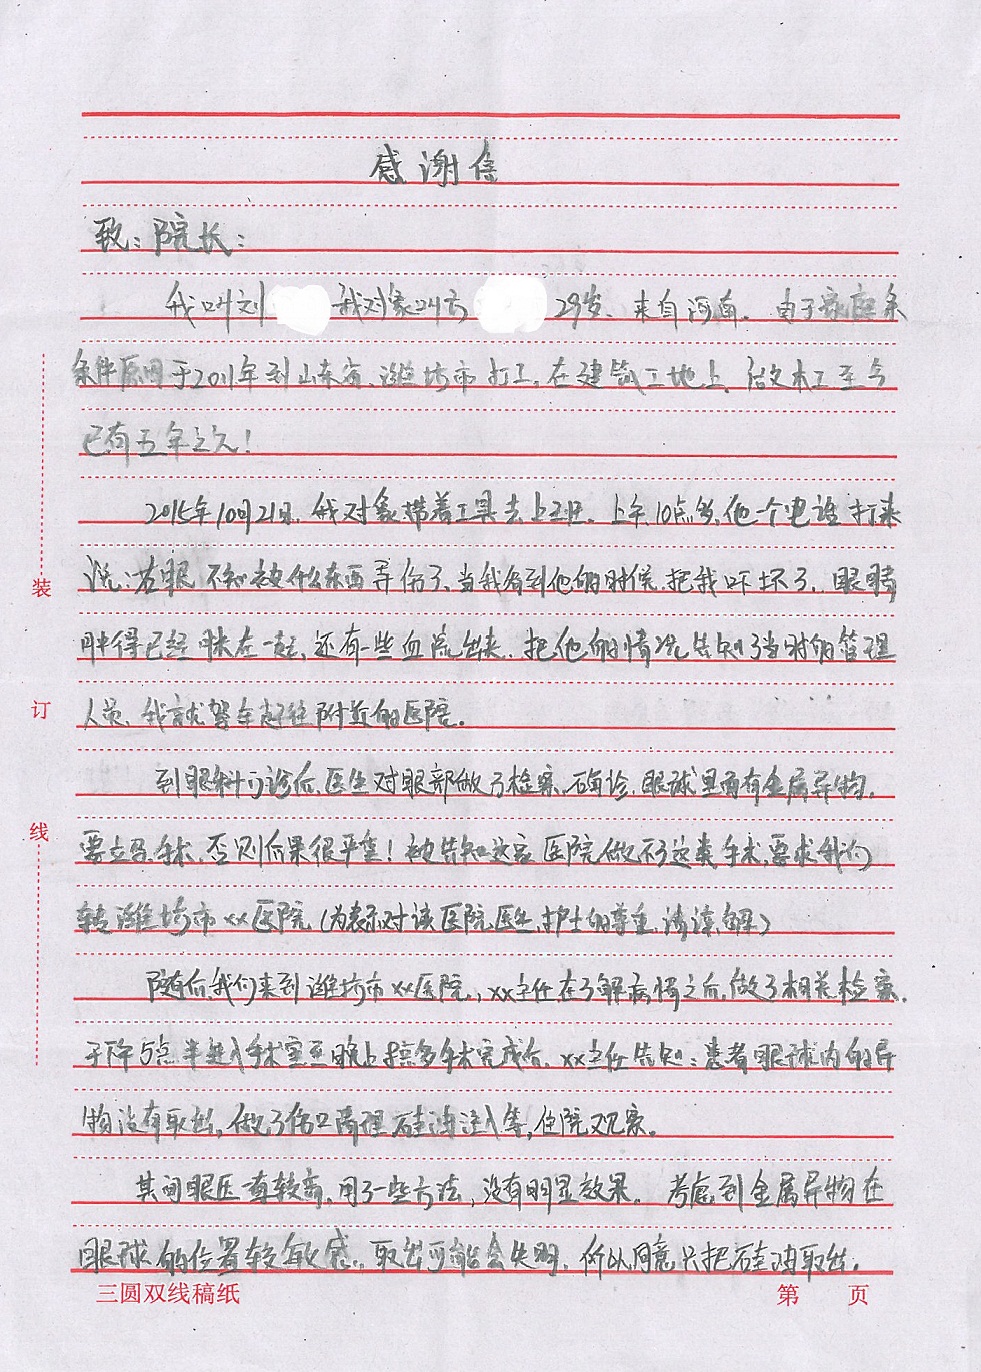 感谢信
致：院长：
我叫刘 我对象叫方 29岁、来自河南。由于家庭条
条件原因于2011年到山东省、潍坊市打工。在建筑工地上、做木工至今
已有五年之久！
2015年10月21日，我对象带着工具去上班。上午10点多，他一个电话打来
说：右眼不知被什么东西弄伤了、当我看到他的时候，把我吓坏了。眼睛
肿得已经眯在一起，还有一些血流出来．把他的情况告知了当时的管理
人员、我就驾车赶往附近的医院。
到眼科门诊后，医生对眼部做了检察，确诊，眼球里面有金属异物，
要立马手术，否则后果很严重！被告知这家医院做不了这类手术，要求我们
转潍坊市xx医院（为表示对该医院医生，护士的尊重，请谅解）
随后我们来到潍坊市xx医院，xx主任在了解病情之后，做了相关检察．
于下午5点半进入手术室至晚上 点多手术完成后，xx主任告知：患者眼球内的异
物没有取出，做了伤口清理硅油注入等，住院观察。
其间眼压一直较高，用了一些方法，没有明显效果。考虑到金属异物在
眼球的位置较敏感．取出可能会失明，所以同意只把硅油取出。
装
订
线
三圆双线稿纸 第 页